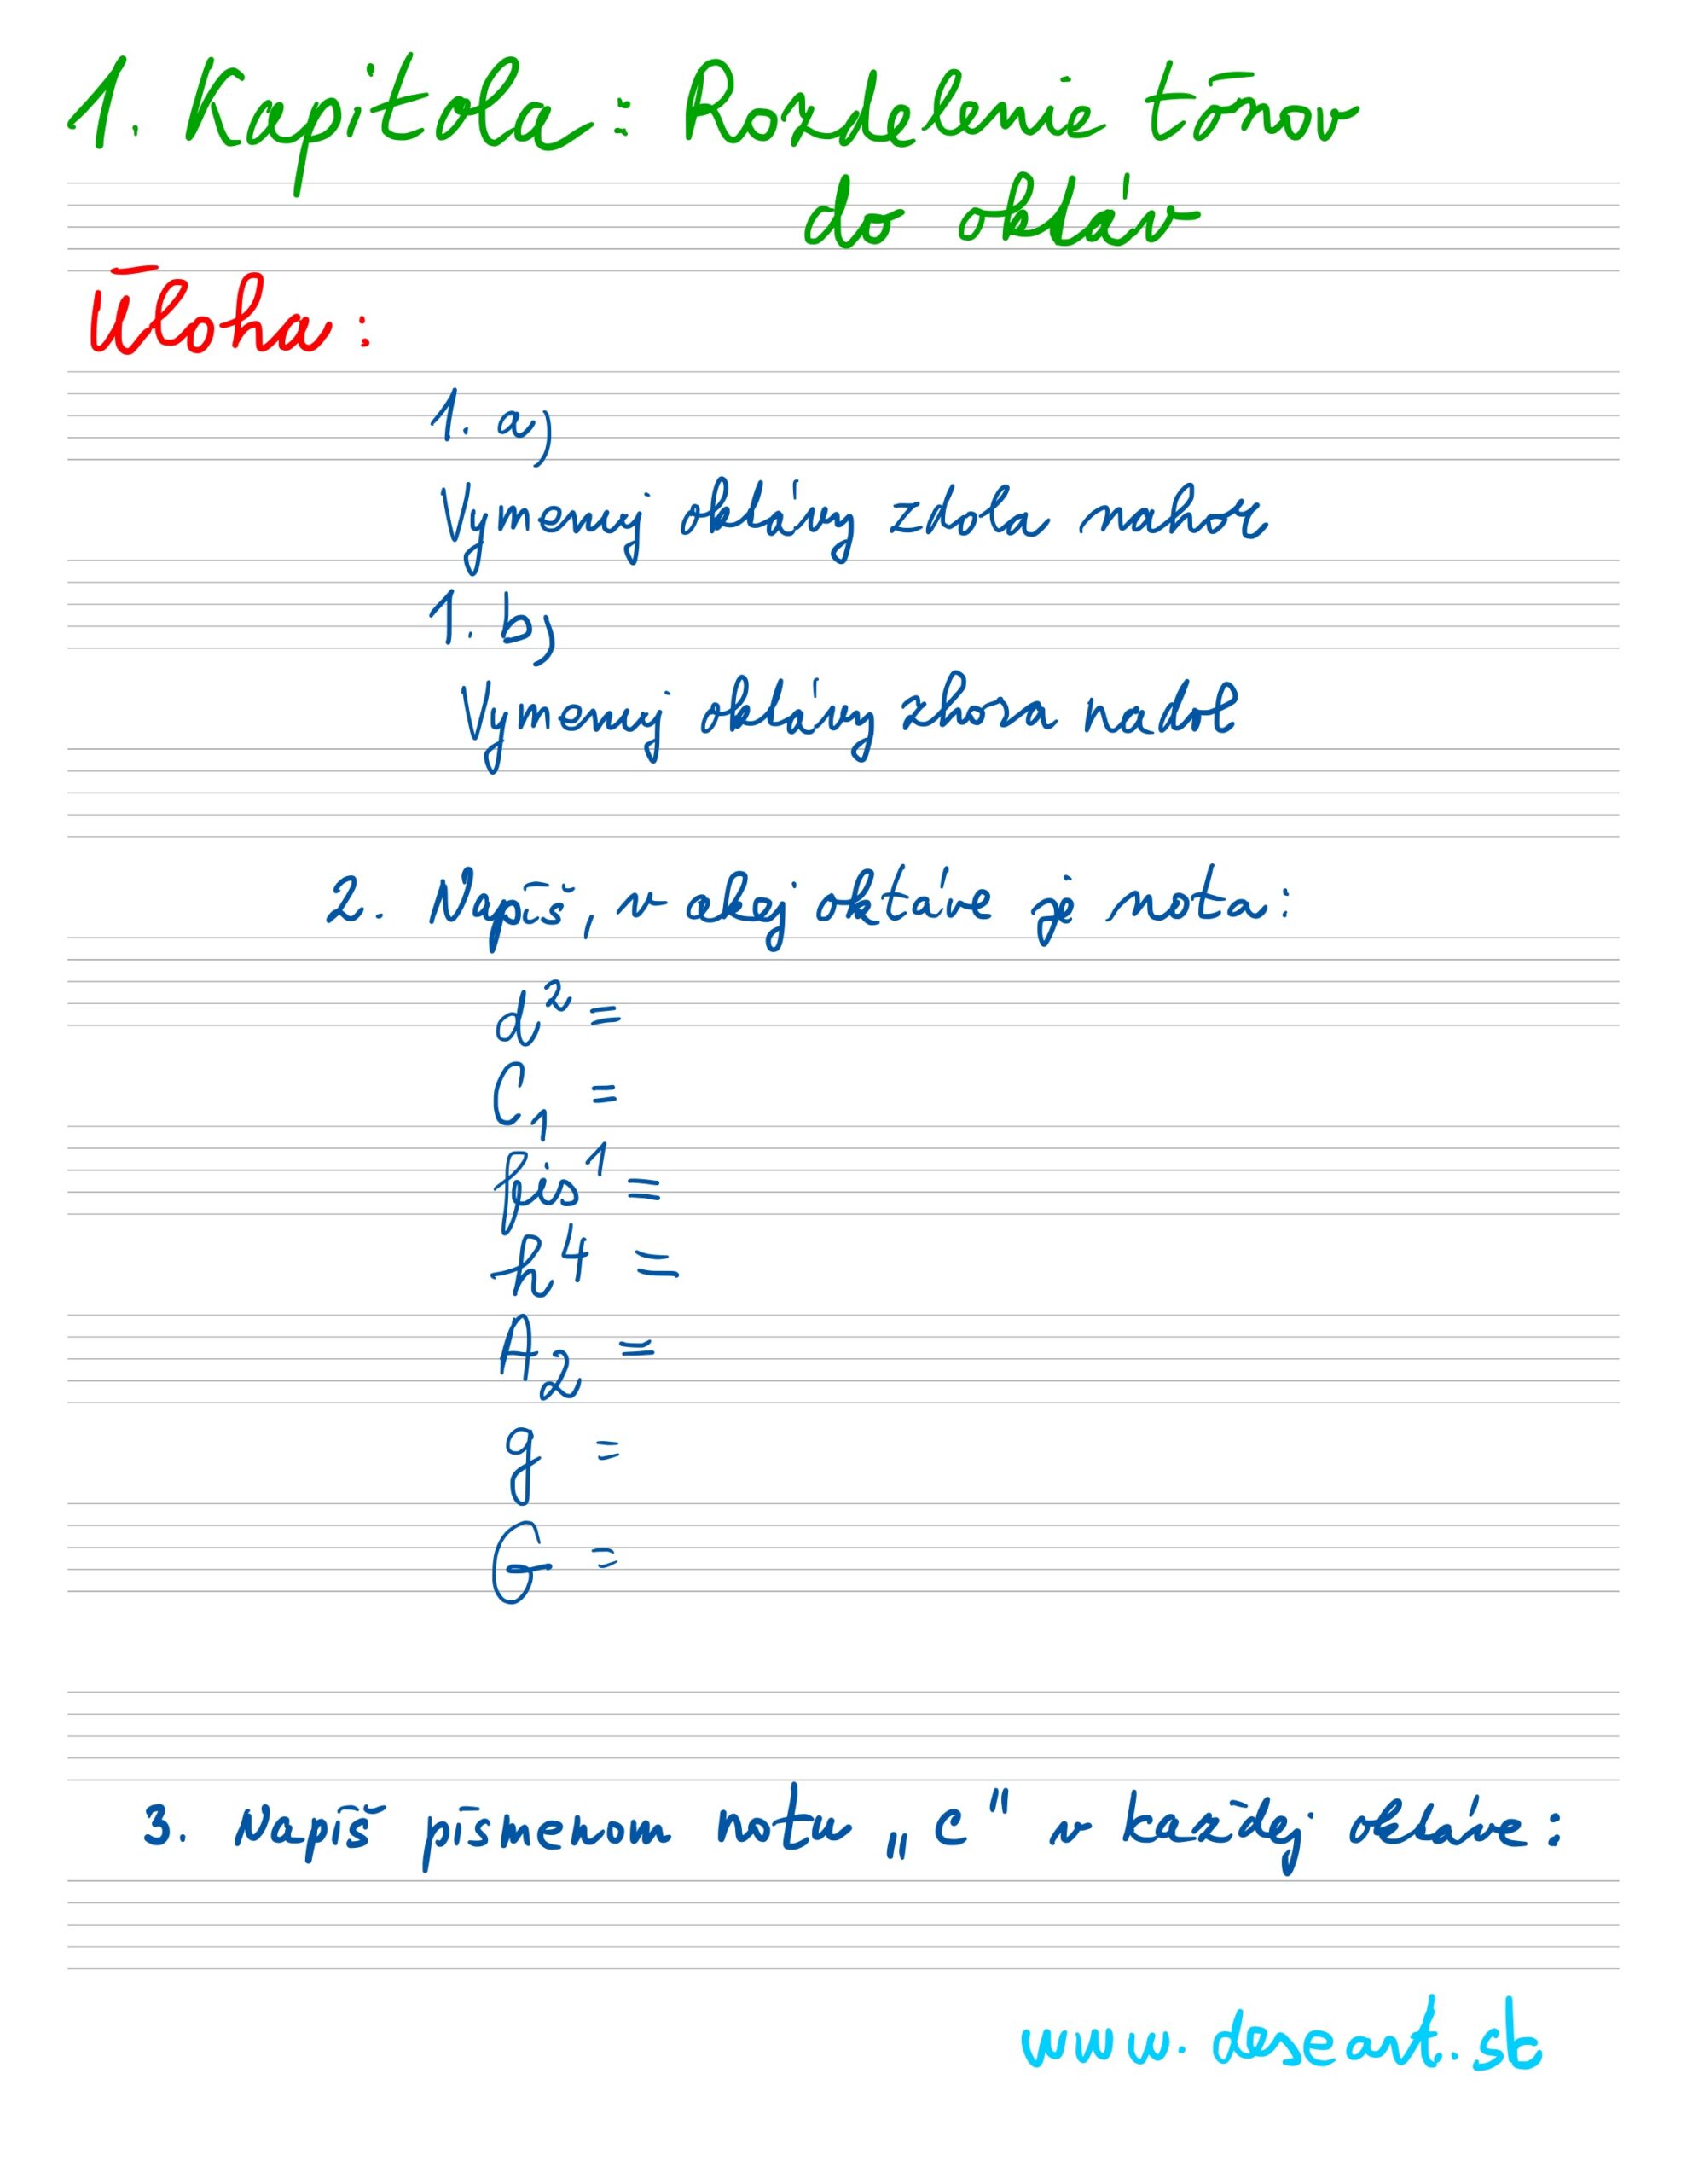 1. Kapitola: Rozdelenie tónov
do oktáv
Úloha:
1. a)
Vymenuj oktávy zdola nahor
1. b)
Vymenuj oktávy zhora nadol
2. Napíš, v akej oktáve je nota:
d² =
C₁ =
fis¹ =
h⁴ =
A₂ =
g =
G =
3. Napíš písmenom notu „c" v každej oktáve:
www.dereart.sk